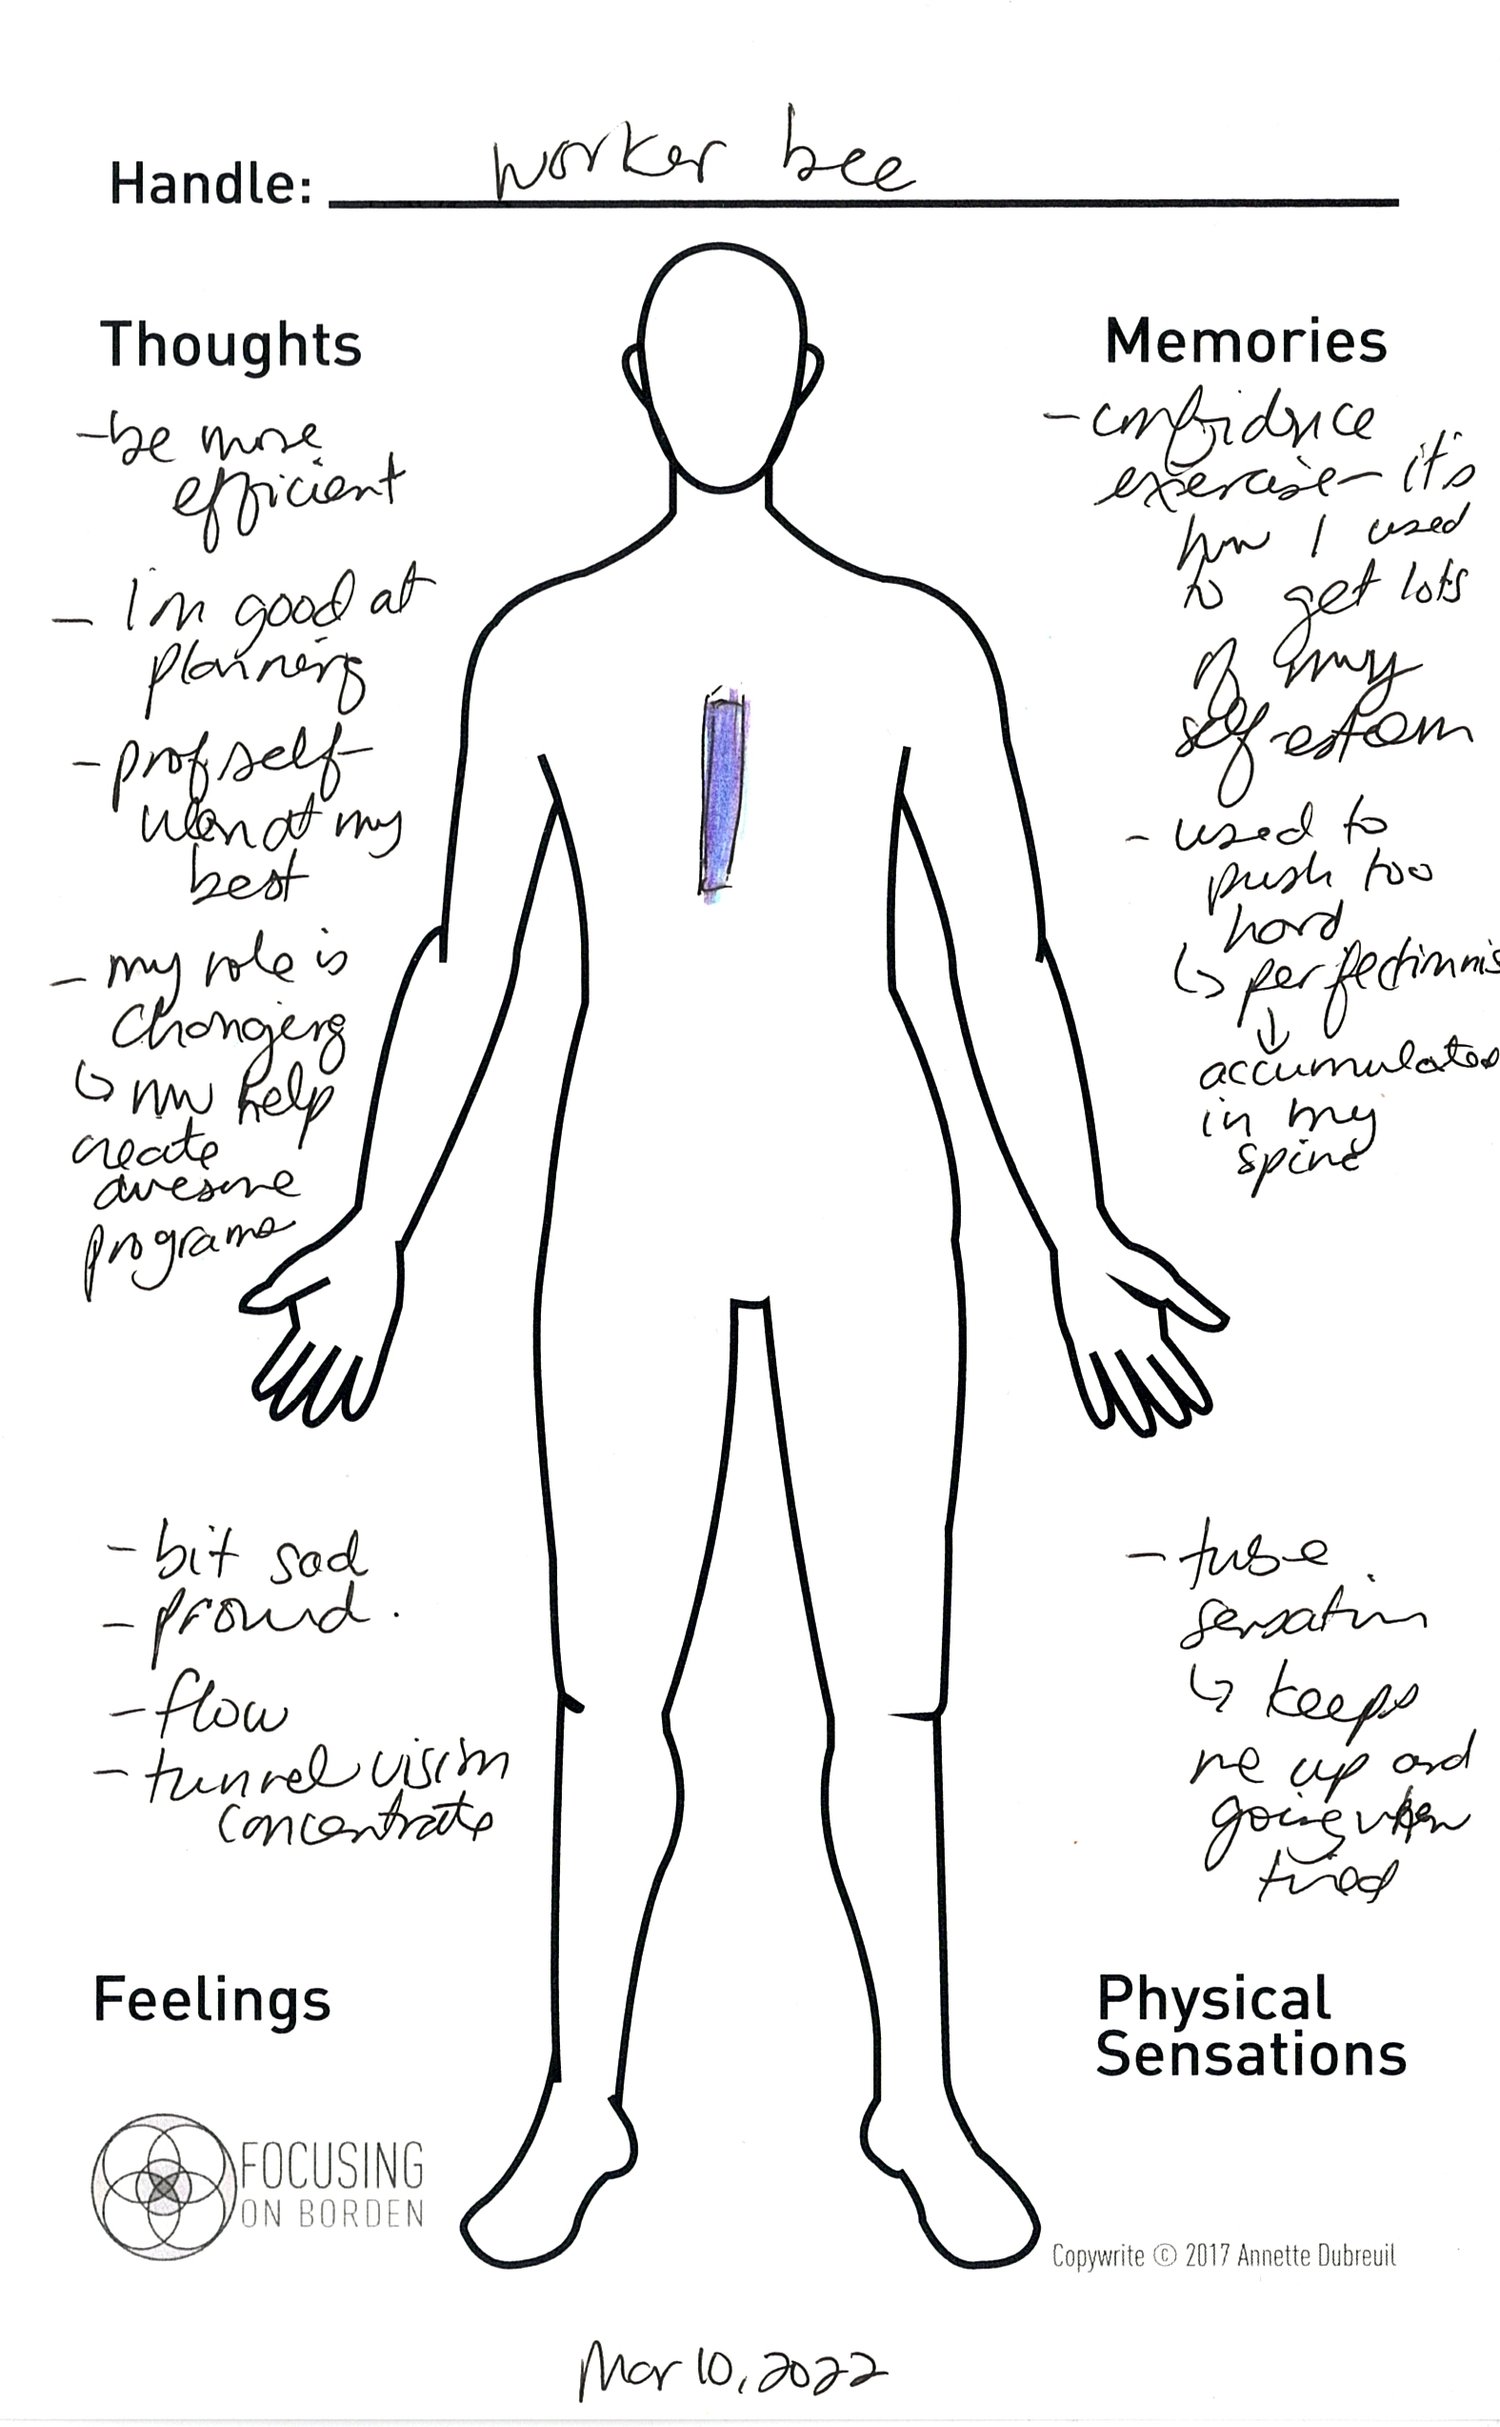 Handle: worker bee
Thoughts
-be more
efficient
- I'm good at
planning
- prof self-
when at my
best
- my role is
changing
↳ now help
create
awesome
programs
Memories
- confidence
exercise - it's
how I used
to get lots
of my
self-esteem
- used to
push too
hard
↳ perfectionnis
↓
accumulates
in my
spine
- bit sad
- proud.
- flow
- tunnel vision
concentrate
Feelings
- tube
sensation
↳ keeps
me up and
going when
tired
Physical
Sensations
FOCUSING
ON BORDEN
Copywrite © 2017 Annette Dubreuil
Mar 10, 2022